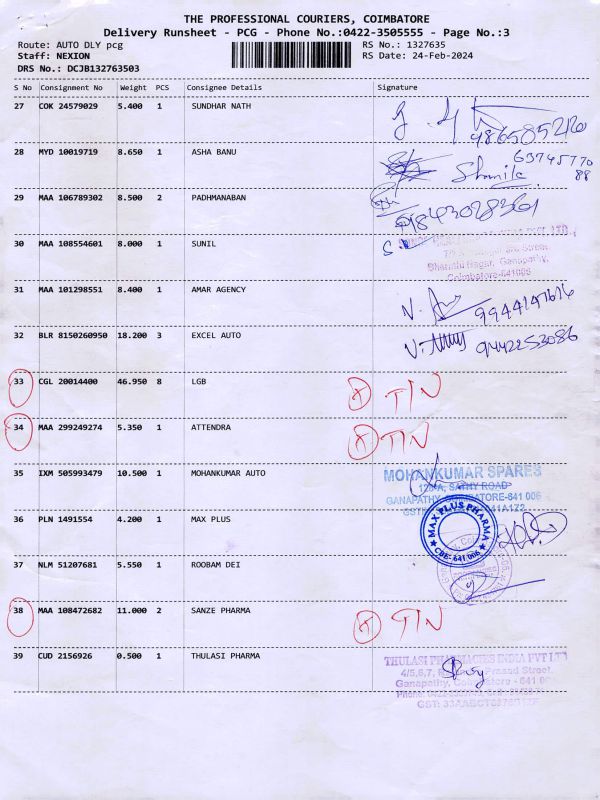 THE PROFESSIONAL COURIERS, COIMBATORE
Delivery Runsheet - PCG - Phone No.:0422-3505555 - Page No.:3
Route: AUTO DLY pcg RS No.: 1327635
Staff: NEXION RS Date: 24-Feb-2024
DRS No.: DCJB132763503
S No Consignment No Weight PCS Consignee Details Signature
27 COK 24579029 5.400 1 SUNDHAR NATH
28 MYD 10019719 8.650 1 ASHA BANU
63745770
88
29 MAA 106789302 8.500 2 PADHMANABAN
9843028361
30 MAA 108554601 8.000 1 SUNIL
Bharathi Nagar, Ganapathy,
Coimbatore-641006
31 MAA 101298551 8.400 1 AMAR AGENCY
32 BLR 8150260950 18.200 3 EXCEL AUTO
9442253086
33 CGL 20014400 46.950 8 LGB T/N
34 MAA 299249274 5.350 1 ATTENDRA T/N
35 IXM 505993479 10.500 1 MOHANKUMAR AUTO
MOHANKUMAR SPARES
SATHY ROAD
GANAPATHY, COIMBATORE-641 006
36 PLN 1491554 4.200 1 MAX PLUS
MAX PLUS PHARMA
CBE-641 006
37 NLM 51207681 5.550 1 ROOBAM DEI
38 MAA 108472682 11.000 2 SANZE PHARMA T/N
39 CUD 2156926 0.500 1 THULASI PHARMA
THULASI PHARMACIES INDIA PVT LTD
4/5,6,7, Prasad Street,
Ganapathy, Coimbatore - 641 00